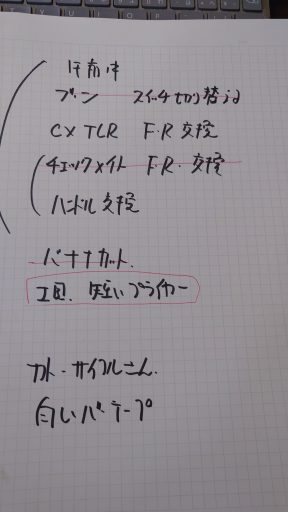 ブーン スイッチ切り替える
CX TLR F・R 交換
チェックメイト F・R・交換
ハンドル交換
バナナガット、
工具、短いプライヤー
カトーサイクルさん、
白いバーテープ